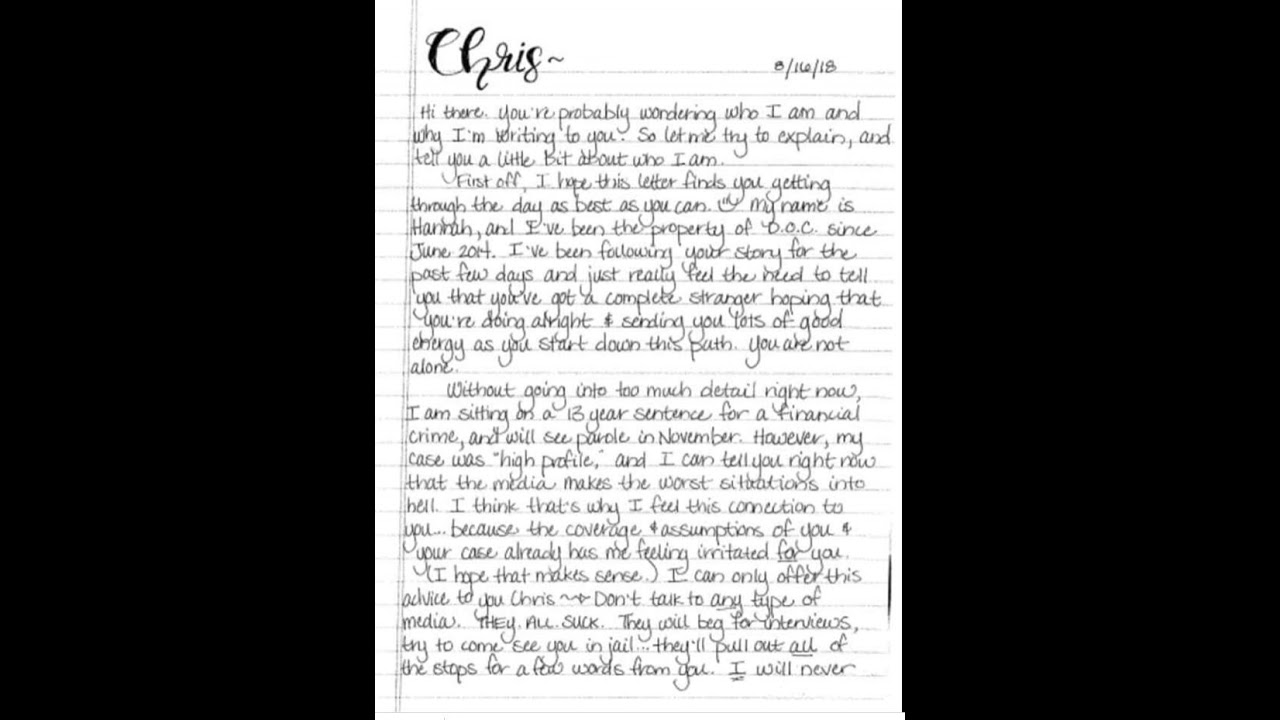 Chris~
8/16/18
Hi there. You're probably wondering who I am and
why I'm writing to you? So let me try to explain, and
tell you a little bit about who I am.
First off, I hope this letter finds you getting
through the day as best as you can. My name is
Hannah, and I've been the property of D.O.C. since
June 2014. I've been following your story for the
past few days and just really feel the need to tell
you that you've got a complete stranger hoping that
you're doing alright & sending you lots of good
energy as you start down this path. You are not
alone.
Without going into too much detail right now,
I am sitting on a 13 year sentence for a financial
crime, and will see parole in November. However, my
case was "high profile," and I can tell you right now
that the media makes the worst situations into
hell. I think that's why I feel this connection to
you... because the coverage & assumptions of you &
your case already has me feeling irritated for you.
(I hope that makes sense.) I can only offer this
advice to you Chris ~> Don't talk to any type of
media. THEY. ALL. SUCK. They will beg for interviews,
try to come see you in jail... they'll pull out all of
the stops for a few words from you. I will never